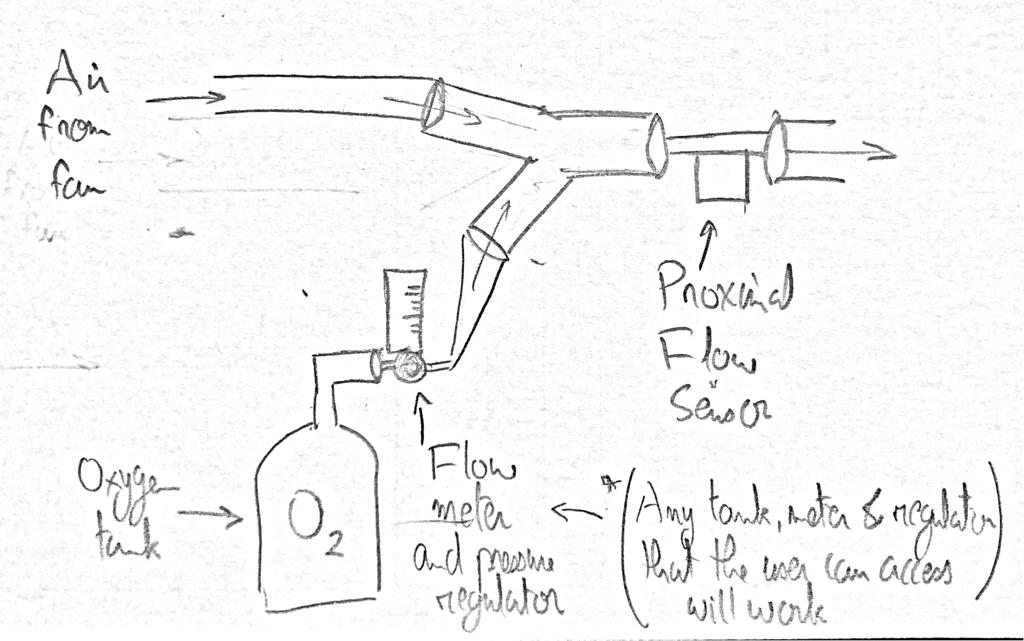 Air
from
fan
Proximal
Flow
Sensor
Oxygen
tank
O2
Flow
meter
and pressure
regulator
*(Any tank, meter & regulator
that the user can access
will work)